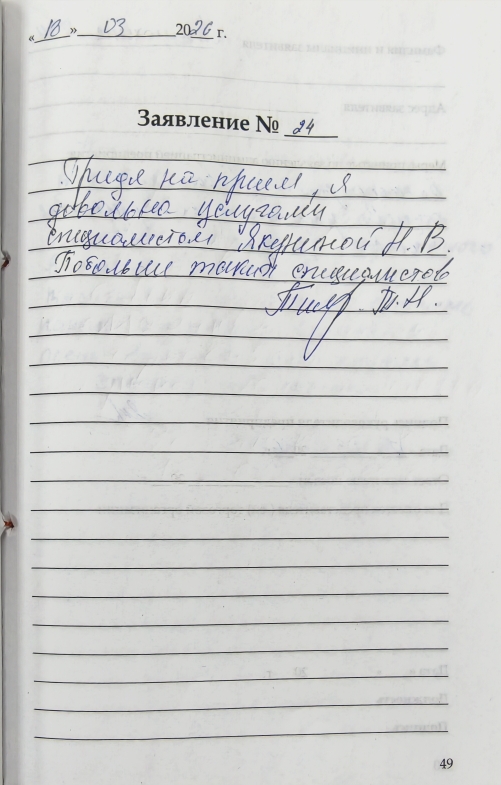 «18» 03 2026 г.
Заявление № 24
Придя на прием, я
довольна услугами
специалистом Якуниной Н.В.
Побольше таких специалистов
Т.Н.
49